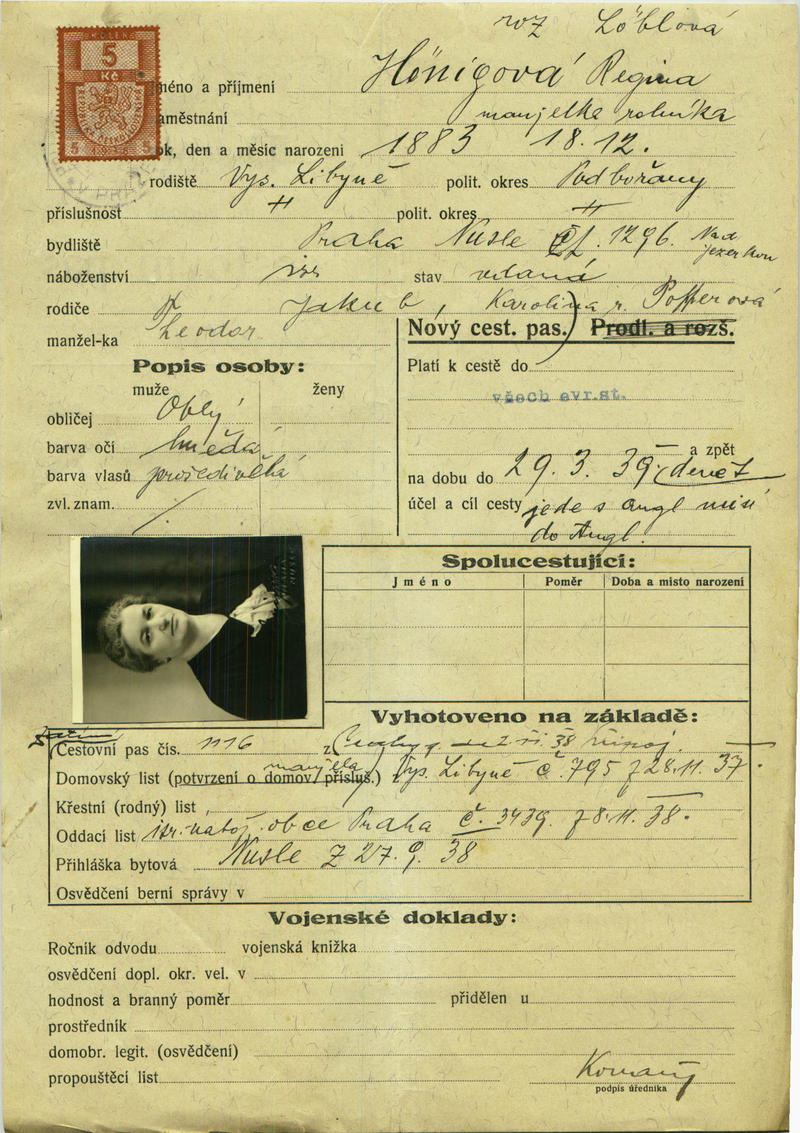 roz Löblová
5
Kč
5 5
méno a příjmení Hönigová Regina
aměstnání manželka rolníka
ok, den a měsíc narození 1883 18.12.
rodiště Vys. Libyně polit. okres Podbořany
příslušnost " polit. okres "
bydliště Praha Nusle čp. 1296. Nad Jezerkou
náboženství isr stav vdaná
rodiče Jakub, Karolina r. Pofferová
manžel-ka Leodor
Nový cest. pas. Prodl. a rozš.
Popis osoby:
Platí k cestě do
muže ženy
všech evr.st.
obličej Oblý
barva očí hnědá
a zpět
barva vlasů prošedivělá
na dobu do 29. 3. 39
zvl. znam. /
účel a cíl cesty jede s angl misí
do Angl.
Spolucestující:
Jméno Poměr Doba a místo narození
Vyhotoveno na základě:
Cestovní pas čís. 1116 z 38
Domovský list (potvrzení o domov. přísluš.) manžela Vys. Libyně č. 795 z 28.11. 37.
Křestní (rodný) list
Oddací list isr. nábož. obce Praha č. 3439. z 8.11. 38.
Přihláška bytová Nusle z 27. 9. 38
Osvědčení berní správy v
Vojenské doklady:
Ročník odvodu vojenská knížka
osvědčení dopl. okr. vel. v
hodnost a branný poměr přidělen u
prostředník
domobr. legit. (osvědčení)
propouštěcí list
podpis úředníka